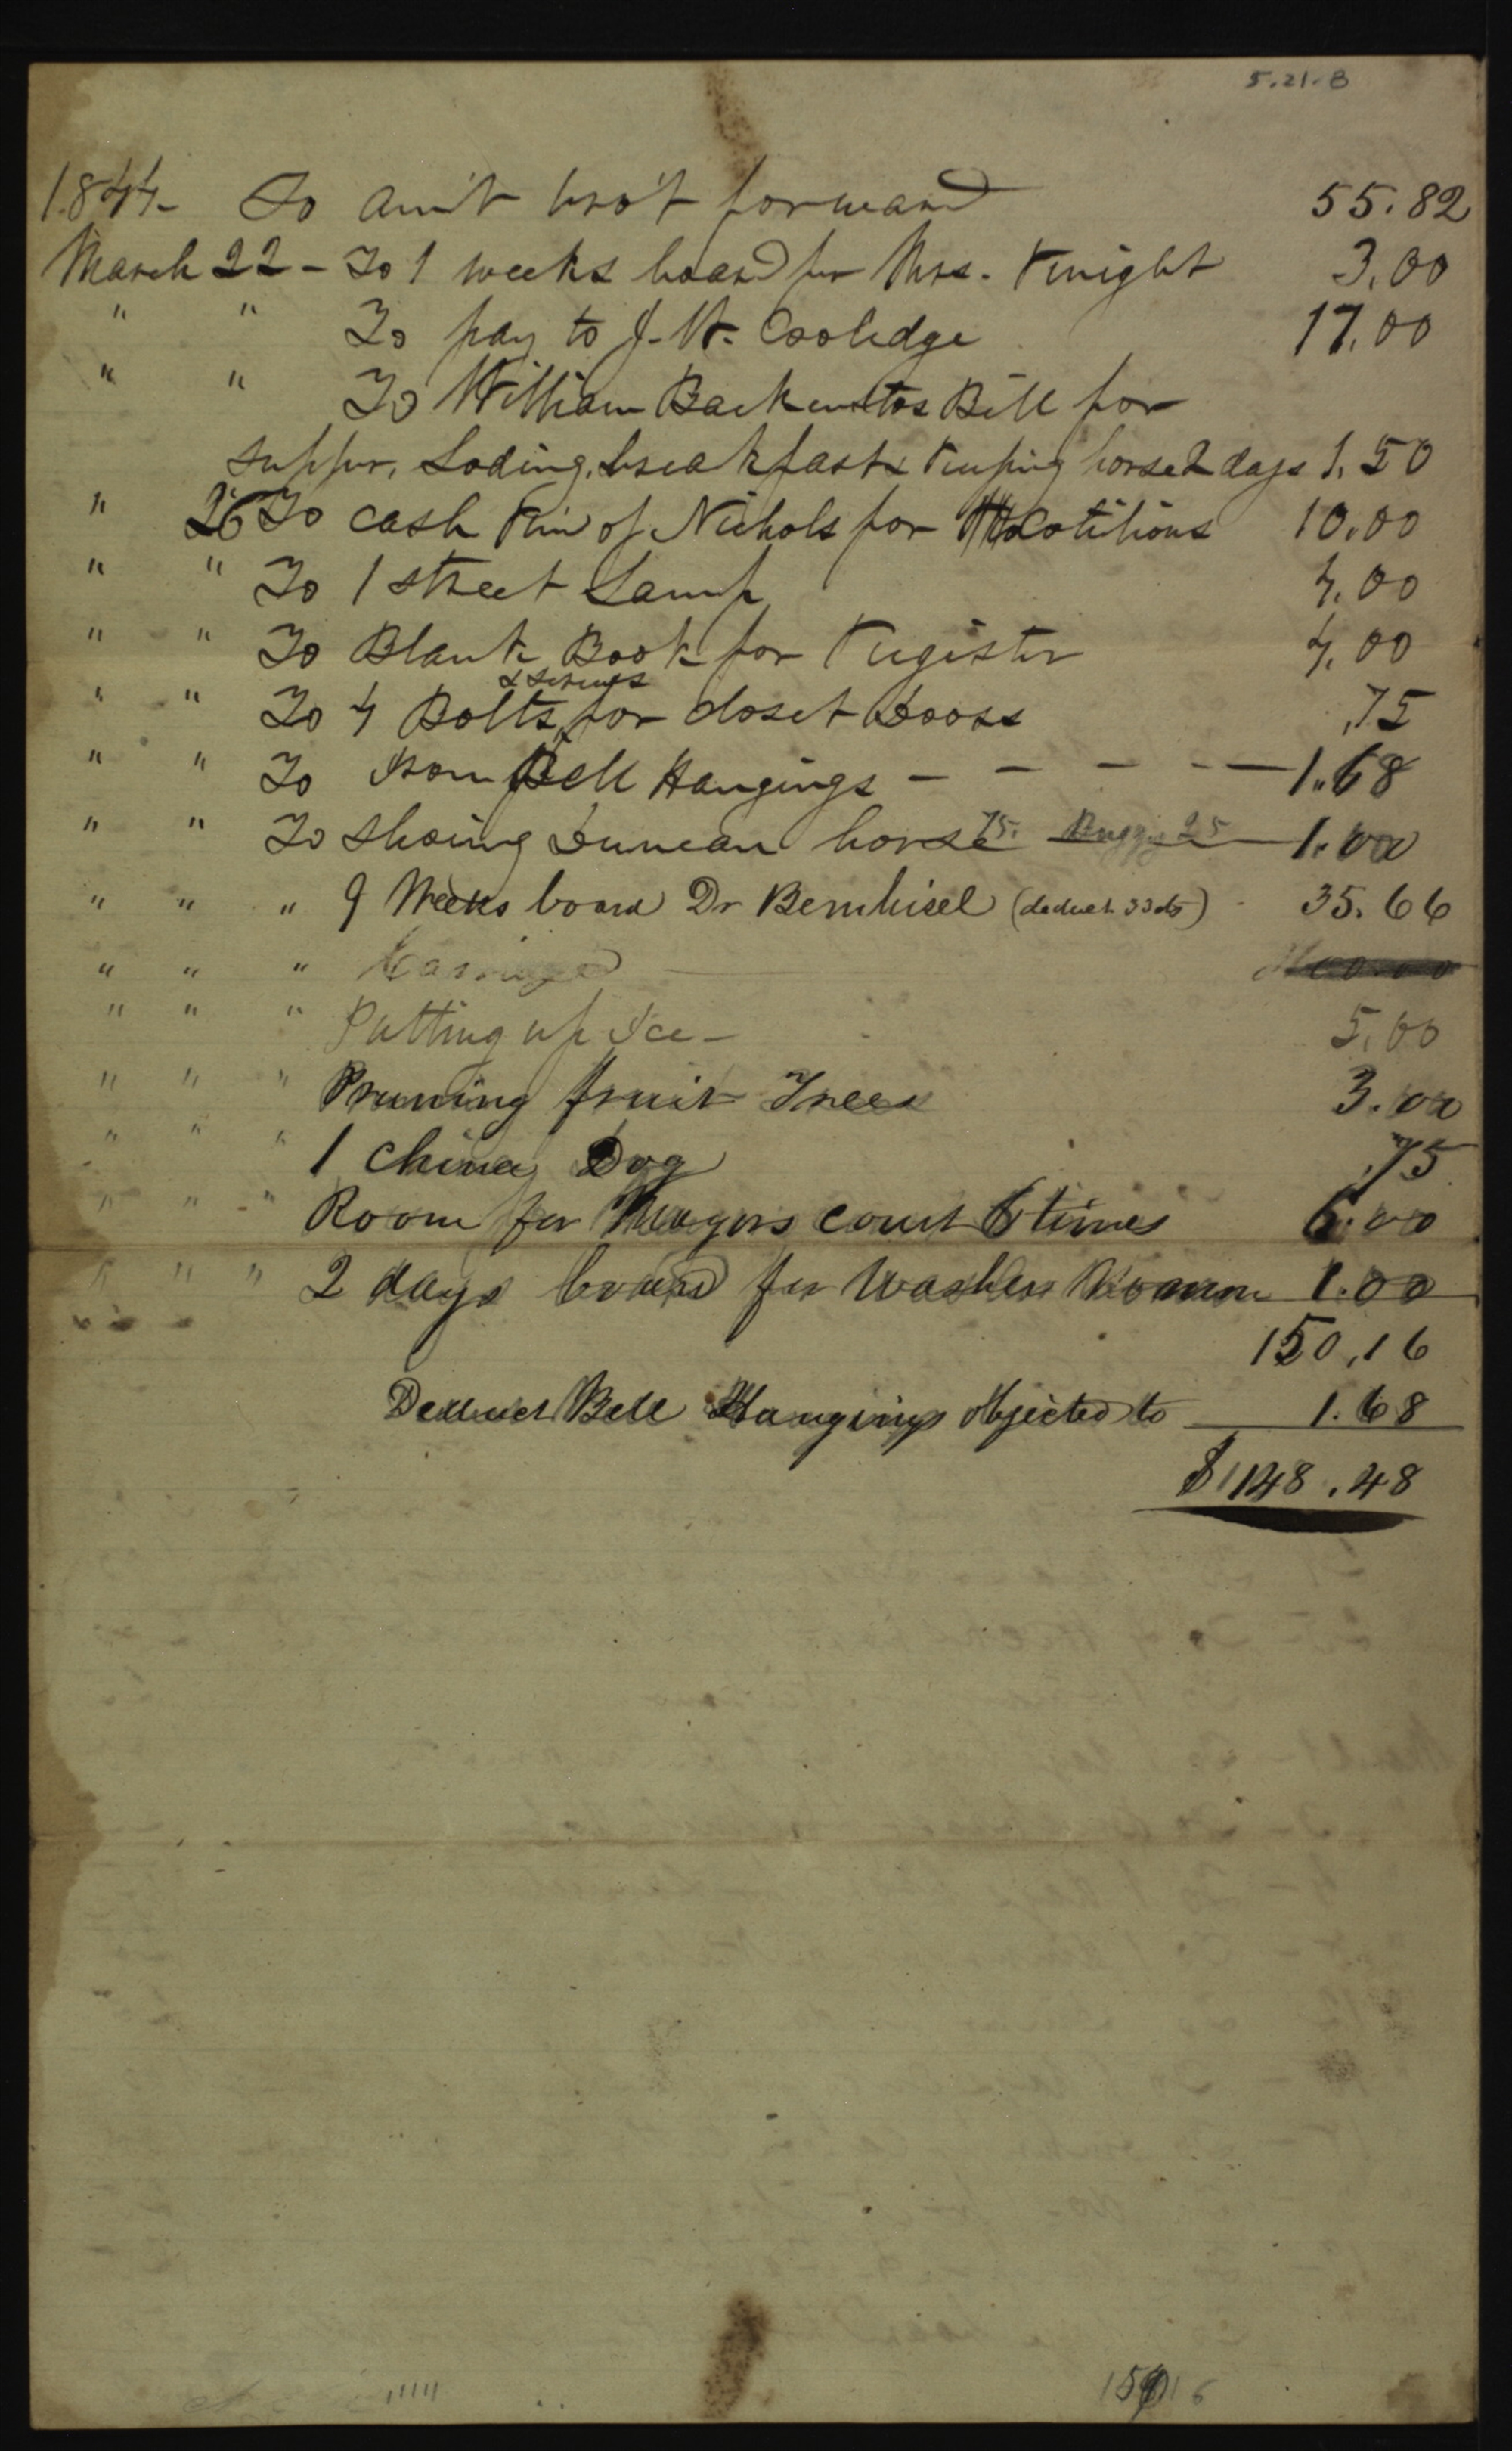 5.21.8
1844- To am't bro't forward 55.82
March 22 - To 1 weeks board for Mrs. Knight 3.00
" " To pay to J. W. Coolidge 17.00
" " To William Backenstos Bill for
supper, Loding, breakfast & keeping horse 2 days 1.50
" 26 To cash of Nichols for 10.00
" " To 1 street Lamp 4.00
" " To Blank Book for Register 4.00
& screws
" " To 4 Bolts for closet Doors .75
" " To Iron Bell Hangings - - - - 1.68
" " To Shoing Duncan horse 75. Buggy 25 1.00
" " " 9 Weeks board Dr Bernhisel (deduct 33 cts) 35.66
" " " Carriage
" " " Putting up Ice - 5.00
" " " Pruning fruit Trees 3.00
" " " 1 China Dog .75
" " " Room for Mayors court 6 times 6.00
" " " 2 days board for Washer Woman 1.00
150.16
Deduct Bell Hangings objected to 1.68
$148.48